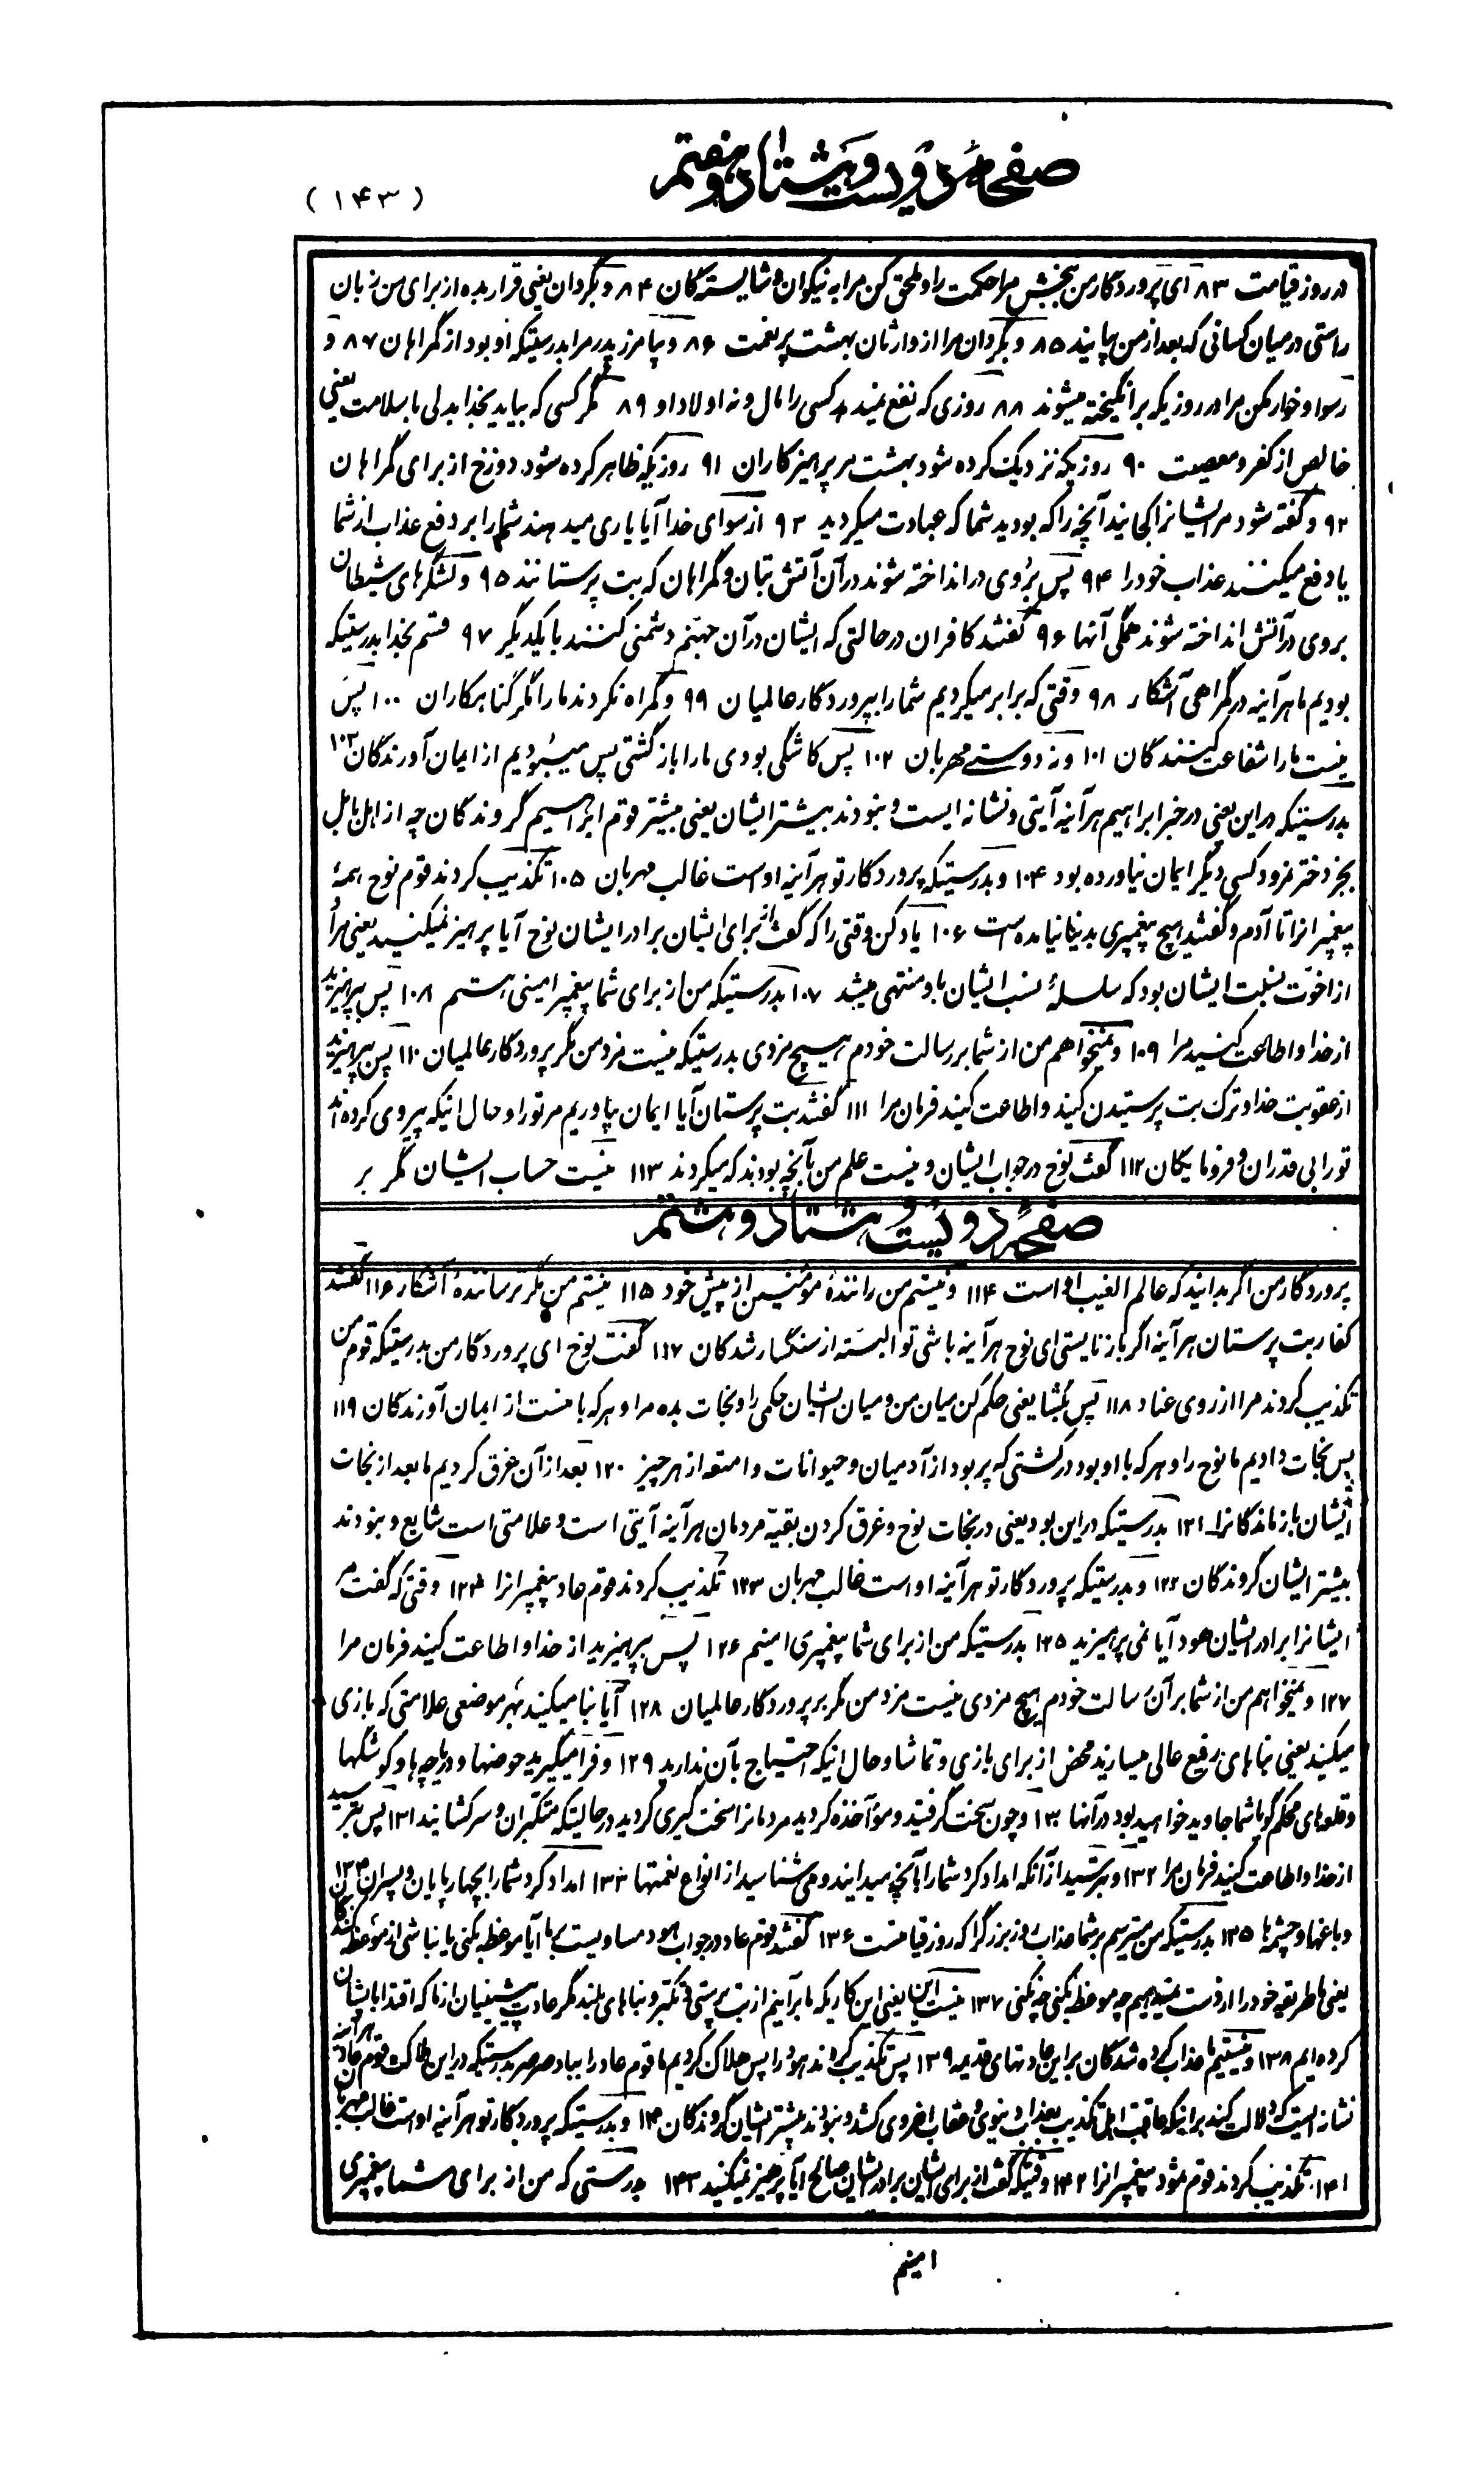 صفحهٔ دویست و هشتاد و هفتم
(۱۴۳)
در روز قیامت ۸۳ ای پروردگار من ببخش مرا حکمت را و ملحق کن مرا به نیکوان و شایسته‌گان ۸۴ و بگردان یعنی قرار بده از برای من زبان
راستی در میان کسانی که بعد از من بیایند ۸۵ و بگردان مرا از وارثان بهشت پر نعمت ۸۶ و بیامرز پدر مرا بدرستیکه او بود از گمراهان ۸۷ و
رسوا و خوار مکن مرا در روزیکه برانگیخته میشوند ۸۸ روزی که نفع نمیدهد کسی را مال و نه اولاد او ۸۹ مگر کسی که بیاید بخدا بدلی با سلامت یعنی
خالص از کفر و معصیت ۹۰ روزیکه نزدیک کرده شود بهشت مر پرهیزکاران ۹۱ روزیکه ظاهر کرده شود دوزخ از برای گمراهان
۹۲ و گفته شود مر ایشانرا کجایند آنچه را که بودید شما که عبادت میکردید ۹۳ از سوای خدا آیا یاری میدهند شما را بر دفع عذاب از شما
یا دفع میکنند عذاب خود را ۹۴ پس بروی در انداخته شوند در آن آتش بتان و گمراهان که بت پرستانند ۹۵ و لشکرهای شیطان
بروی در آتش انداخته شوند همگی آنها ۹۶ گفتند کافران در حالتی که ایشان در آن جهنم دشمنی کنند با یکدیگر ۹۷ قسم بخدا بدرستیکه
بودیم ما هر آینه در گمراهی آشکار ۹۸ وقتی که برابر میکردیم شما را بپروردگار عالمیان ۹۹ و گمراه نکردند ما را مگر گناهکاران ۱۰۰ پس
نیست ما را شفاعت کنندگان ۱۰۱ و نه دوستی مهربان ۱۰۲ پس کاشکی بودی ما را بازگشتی پس میبودیم از ایمان آورندگان ۱۰۳
بدرستیکه در این یعنی در خبر ابراهیم هر آینه آیتی و نشانه ایست و نبودند بیشتر ایشان یعنی بیشتر قوم ابراهیم گروندگان چه از اهل بابل
بجز دختر نمرود کسی دیگر ایمان نیاورده بود ۱۰۴ و بدرستیکه پروردگار تو هر آینه او است غالب مهربان ۱۰۵ تکذیب کردند قوم نوح همهٔ
پیغمبرانرا تا آدم و گفتند هیچ پیغمبری بدنیا نیامده است ۱۰۶ یاد کن وقتی را که گفت از برای ایشان برادر ایشان نوح آیا پرهیز نمیکنید یعنی مراد
از اخوّت نسبت ایشان بود که سلسلهٔ نسب ایشان باو منتهی میشد ۱۰۷ بدرستیکه من از برای شما پیغمبر امینی هستم ۱۰۸ پس بپرهیزید
از خدا و اطاعت کنید مرا ۱۰۹ و نمیخواهم من از شما بر رسالت خودم هیچ مزدی بدرستیکه نیست مزد من مگر پروردگار عالمیان ۱۱۰ پس بپرهیزید
از عقوبت خدا و ترک بت پرستیدن کنید و اطاعت کنید فرمان مرا ۱۱۱ گفتند بت پرستان آیا ایمان بیاوریم مر تو را و حال انیکه پیروی کرده‌اند
تو را بی قدران و فرومایکان ۱۱۲ گفت نوح در جواب ایشان و نیست علم من بآنچه بودند که میکردند ۱۱۳ نیست حساب ایشان مگر بر
صفحهٔ دویست و هشتاد و هشتم
پروردگار من اگر بدانید که عالم الغیب او است ۱۱۴ و نیستم من رانندهٔ مؤمنین از پیش خود ۱۱۵ نیستم من مگر ترسانندهٔ آشکار ۱۱۶ گفتند
کفار بت پرستان هر آینه اگر باز نایستی ای نوح هر آینه باشی تو البته از سنگسار شدگان ۱۱۷ گفت نوح ای پروردگار من بدرستیکه قوم من
تکذیب کردند مرا از روی عناد ۱۱۸ پس بگشا یعنی حکم کن میان من و میان ایشان حکمی را و نجات بده مرا و هر که با منست از ایمان آورندگان ۱۱۹
پس نجات دادیم ما نوح را و هر که با او بود در کشتی که پر بود از آدمیان و حیوانات و امتعه از هر چیز ۱۲۰ بعد از آن غرق کردیم ما بعد از نجات
ایشان بازماندگانرا ۱۲۱ بدرستیکه در این بود یعنی در نجات نوح و غرق کردن بقیّه مردمان هر آینه آیتی است و علامتی است شایع و نبودند
بیشتر ایشان گروندگان ۱۲۲ و بدرستیکه پروردگار تو هر آینه او است غالب مهربان ۱۲۳ تکذیب کردند قوم عاد پیغمبرانرا ۱۲۴ وقتی که گفت مر
ایشانرا برادر ایشان هود آیا نمی پرهیزید ۱۲۵ بدرستیکه من از برای شما پیغمبری امینم ۱۲۶ پس بپرهیزید از خدا و اطاعت کنید فرمان مرا
۱۲۷ و نمیخواهم من از شما بر آن رسالت خودم هیچ مزدی نیست مزد من مگر بر پروردگار عالمیان ۱۲۸ آیا بنا میکنید بهر موضعی علامتی که بازی
میکنید یعنی بناهای رفیع عالی میسازید محض از برای بازی و تماشا و حال انیکه احتیاج بآن ندارید ۱۲۹ و فرا میگیرید حوضها و دریاچه‌ها و کوشکها
و قلعه‌های محکم گویا شما جاوید خواهید بود در آنها ۱۳۰ و چون سخت گرفتید و مؤآخذه کردید مردمانرا سخت گیری کردید در حالتیکه متکبران و سرکشانید ۱۳۱ پس بترسید
از خدا و اطاعت کنید فرمان مرا ۱۳۲ و بترسید از آنکه امداد کرد شما را بآنچه میدانید و می شناسید از انواع نعمتها ۱۳۳ امداد کرد شما را بچهارپایان و پسران ۱۳۴
و باغها و چشمه‌ها ۱۳۵ بدرستیکه من میترسم بر شما عذاب روز بزرگرا که روز قیامتست ۱۳۶ گفتند قوم عاد در جواب هود مساویست بر ما آیا موعظه بکنی یا نباشی از موعظه کنندگان
یعنی ما طریقه خود را از دست نمیدهیم چه موعظه بکنی چه نکنی ۱۳۷ نیست این یعنی این کاریکه ما برآنیم از بت پرستی و تکبر و بناهای بلند مگر عادت پیشینیان از ما که اقتدا بایشان
کرده‌ایم ۱۳۸ و نیستیم ما عذاب کرده شدگان بر این عادتهای قدیمه ۱۳۹ پس تکذیب کردند هود را پس هلاک کردیم ما قوم عاد را بباد صرصر بدرستیکه در این هلاکت قوم عاد هر آینه
نشانه ایست که دلالت کند بر انیکه عاقبت اهل تکذیب بعذاب دنیوی و عقاب اخروی کشد و نبودند بیشتر ایشان گروندگان ۱۴۰ و بدرستیکه پروردگار تو هر آینه او است غالب مهربان
۱۴۱ تکذیب کردند قوم ثمود پیغمبرانرا ۱۴۲ وقتیکه گفت از برای ایشان برادر ایشان صالح آیا پرهیز نمیکنید ۱۴۳ بدرستی که من از برای شما پیغمبری
امینم